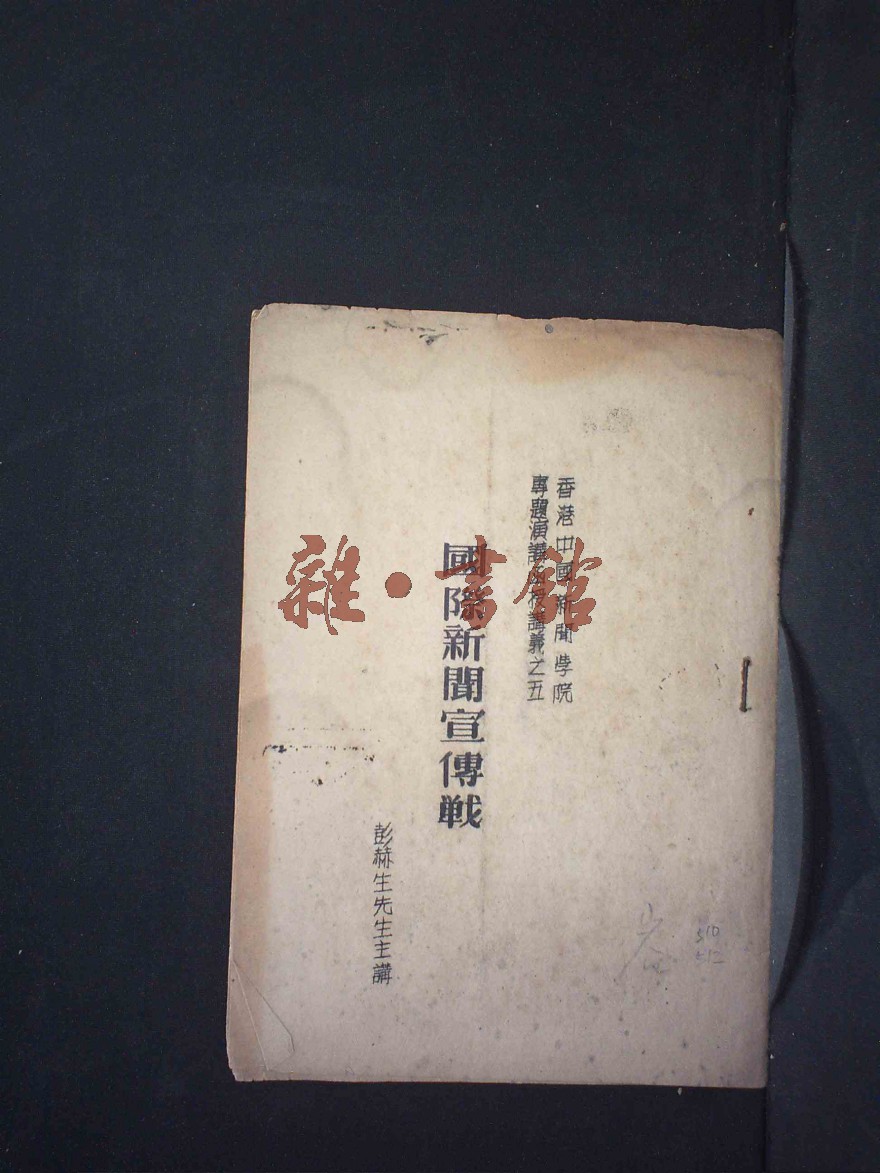 香港中國新聞学院
專題演講函授講義之五
國際新聞宣傳戦
彭赫生先生主講
雜·書館
510
512